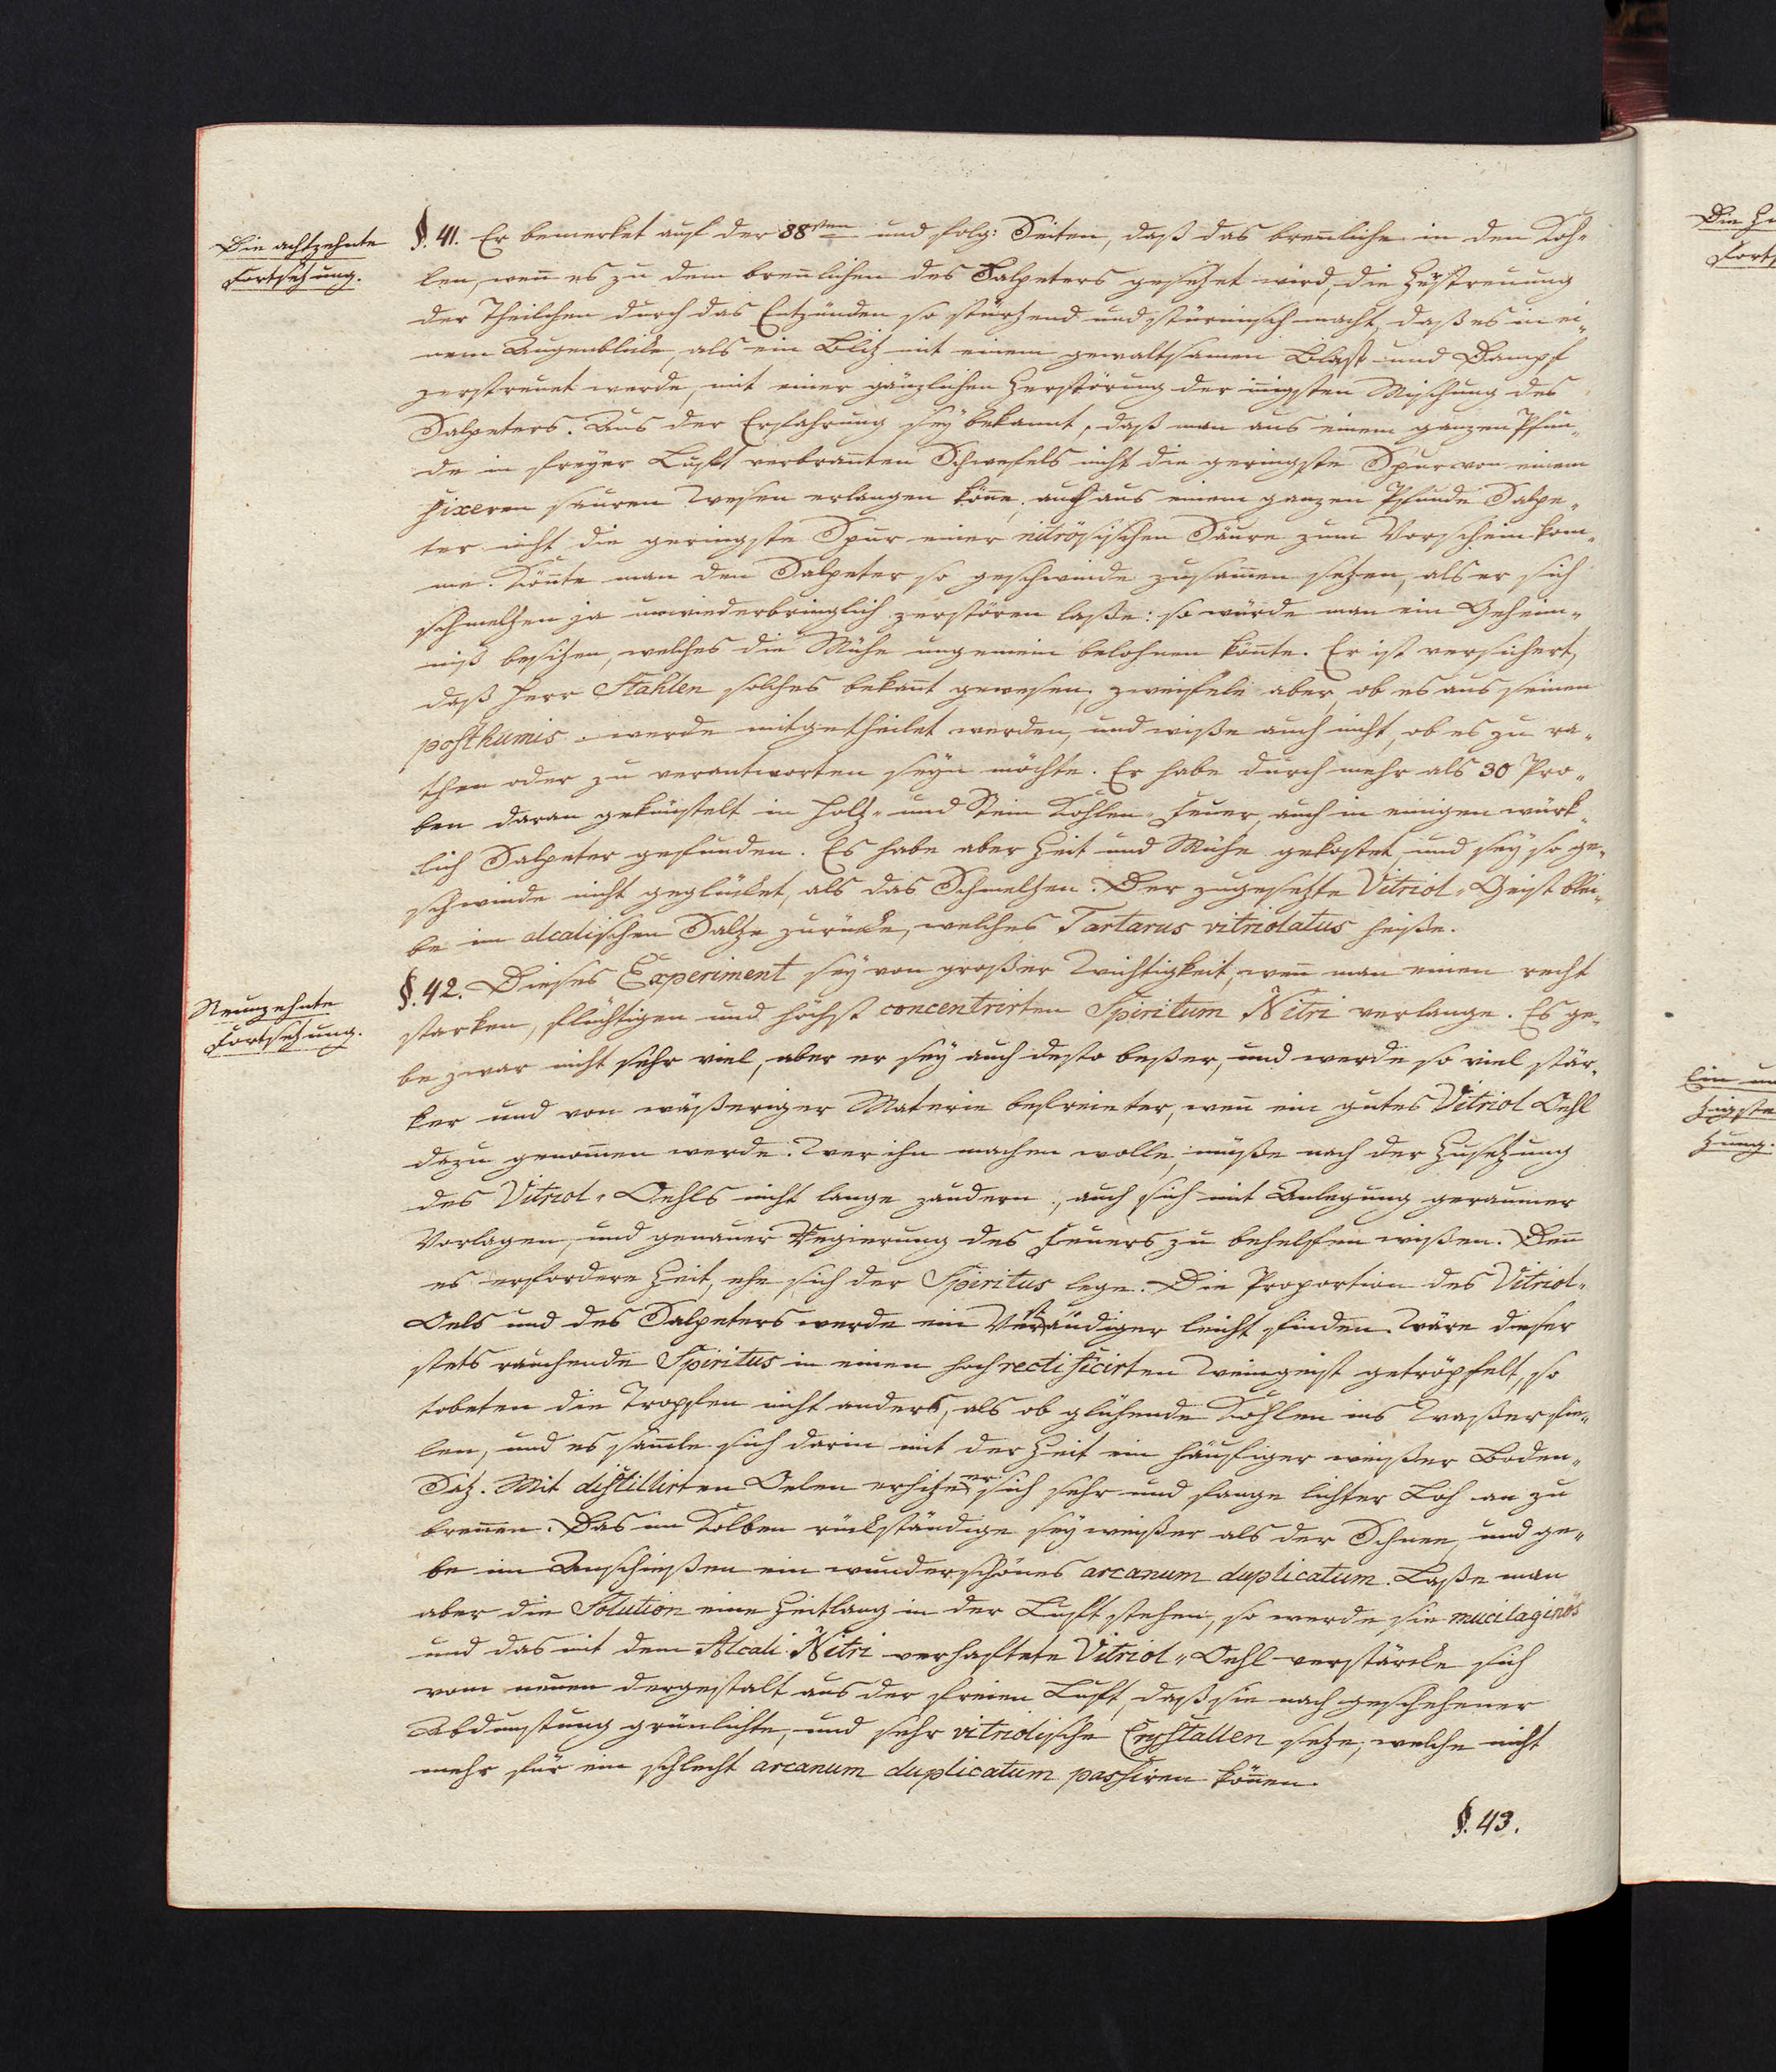 Die achtzehnte
Fortsetzung.
§. 41. Er bemerket auf der 88sten und folg: Seiten, daß das breñliche in den Koh-
len, weñ es zu dem breñlichen des Salpeters gesetzet wird, die Zerstreuung
der Theilchen durch das Entzünden so stürzend und stürmisch macht, daß es in ei-
nem Augenblicke als ein Blitz mit einem gewaltsamen Blast und Dampf
zerstreuet werde, mit einer gänzlichen Zerstörung der iñigsten Mischung des
Salpeters. Aus der Erfahrung sey bekannt, daß man aus einem ganzen Pfun-
de in freyer Luft verbrañten Schwefels nicht die geringste Spur von einem
fixeren sauren Wesen erlangen köñe, auch aus einem ganzen Pfunde Salpe-
ter nicht die geringste Spur einer nitrösischen Säure zum Vorschein kom-
me. Köñte man den Salpeter so geschwinde zusam̃en setzen, als er sich
schmeltzen ja unwiederbringlich zerstören laße: so würde man ein Geheim-
niß besitzen, welches die Mühe ungemein belohnen köñte. Er ist versichert,
daß Herr Stahlen solches bekañt gewesen, zweifele aber, ob es aus seinen
posthumis werde mitgetheilet werden, und wiße auch nicht, ob es zu ra-
then oder zu verantworten seyn möchte. Er habe durch mehr als 30 Pro-
ben daran gekünstelt in Holtz- und Stein Kohlen-Feuer, auch in einigen würk-
lich Salpeter gefunden. Es habe aber Zeit und Mühe gekostet, und sey so ge-
schwinde nicht geglücket, als das Schmeltzen. Der zugesetzte Vitriol-Geist blei-
be im alcalischen Saltze zurücke, welches Tartarus vitriolatus heiße.
Neunzehnte
Fortsetzung.
§. 42. Dieses Experiment sey von großer Wichtigkeit, weñ man einen recht
starken, flüchtigen und höchst concentrirten Spiritum Nitri verlange. Es ge-
be zwar nicht sehr viel, aber er sey auch desto beßer, und werde so viel stär-
ker und von wäßeriger Materie befreieter, weñ ein gutes Vitriol Oehl
dazu genom̃en werde. Wer ihn machen wolle, müße nach der Zusetzung
des Vitriol-Oehls nicht lange zaudern, auch sich mit Anlegung geraumer
Vorlagen, und genauer Regierung des Feuers zu behelfen wißen. Deñ
es erfordere Zeit, ehe sich der Spiritus lege. Die Proportion des Vitriol-
Oels und des Salpeters werde ein Verständiger leicht finden. Wäre dieser
stets rauchende Spiritus in einen hochrectificirten Weingeist getröpfelt, so
tobeten die Tropfen nicht anders, als ob glühende Kohlen ins Waßer fie-
len, und es sam̃le sich darin mit der Zeit ein häufiger weißer Boden-
Satz. Mit distillirten Oelen erhitze er sich sehr und fange lichter Loh an zu
breñen. Das im Kolben rückständige sey weißer als der Schnee, und ge-
be im Anschießen ein wunderschönes arcanum duplicatum. Laße man
aber die Solution eine Zeitlang in der Luft stehen, so werde sie mucilaginös
und das mit dem Alcali Nitri verhaftete Vitriol-Oehl verstärcke sich
vom neuen dergestalt aus der freien Luft, daß sie nach geschehener
Abdunstung grünlichte, und sehr vitriolische Crystallen setze, welche nicht
mehr für ein schlecht arcanum duplicatum passiren köñen.
§. 43.